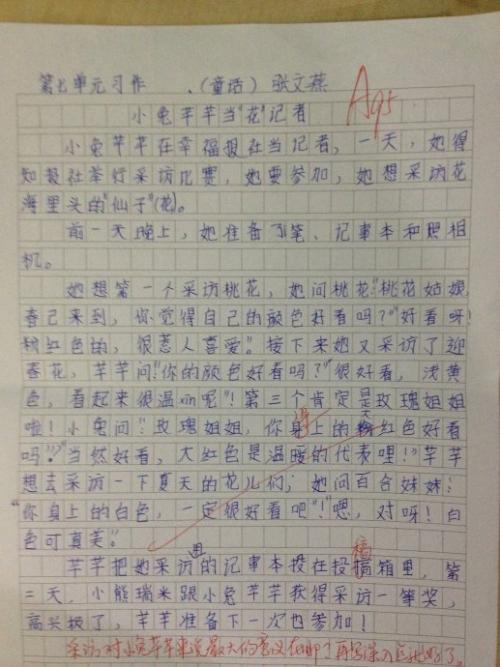 第七单元习作 、(童话) 张文燕
A 95
小兔芊芊当"花"记者
小兔芊芊在幸福报社当记者,一天,她得
知报社举行采访比赛,她要参加,她想采访花
海里头的"仙子"(花)。
前一天晚上,她准备了笔、记事本和照相
机。
她想第一个采访桃花,她问桃花:"桃花姑娘,
春己来到,你觉得自己的颜色好看吗?""好看呀!
粉红色的,很惹人喜爱。"接下来她又采访了迎
春花,芊芊问:"你的颜色好看吗?""很好看,浅黄
色,看起来很温和呢"!第三个肯定是玫瑰姐姐
啦!小兔问:"玫瑰姐姐,你身上的大红色好看
吗?""当然好看,大红色是温暖的代表哩!"芊芊
想去采访一下夏天的花儿们;她问百合妹妹:
"你身上的白色,一定很好看吧"!"嗯,对呀!白
色可真美。"
芊芊把她采访的记事本投在投稿箱里,第
二天,小熊瑞米跟小兔芊芊获得采访一等奖,
高兴极了,芊芊准备下一次也参加!
采访对小兔芊芊来说最大的意义在哪?再写深入些就好了。